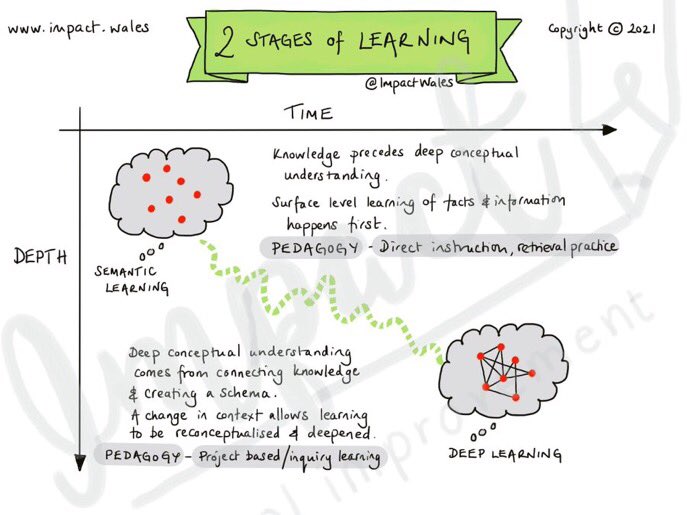 www.impact.wales
2 STAGES of LEARNING
Copyright © 2021
@ImpactWales
TIME
Knowledge precedes deep conceptual
understanding.
Surface level learning of facts & information
happens first.
PEDAGOGY - Direct instruction, retrieval practice
DEPTH
SEMANTIC
LEARNING
Deep conceptual understanding
comes from connecting knowledge
& creating a schema.
A change in context allows learning
to be reconceptualised & deepened.
PEDAGOGY - Project based/inquiry learning
DEEP LEARNING
Impact
improvement